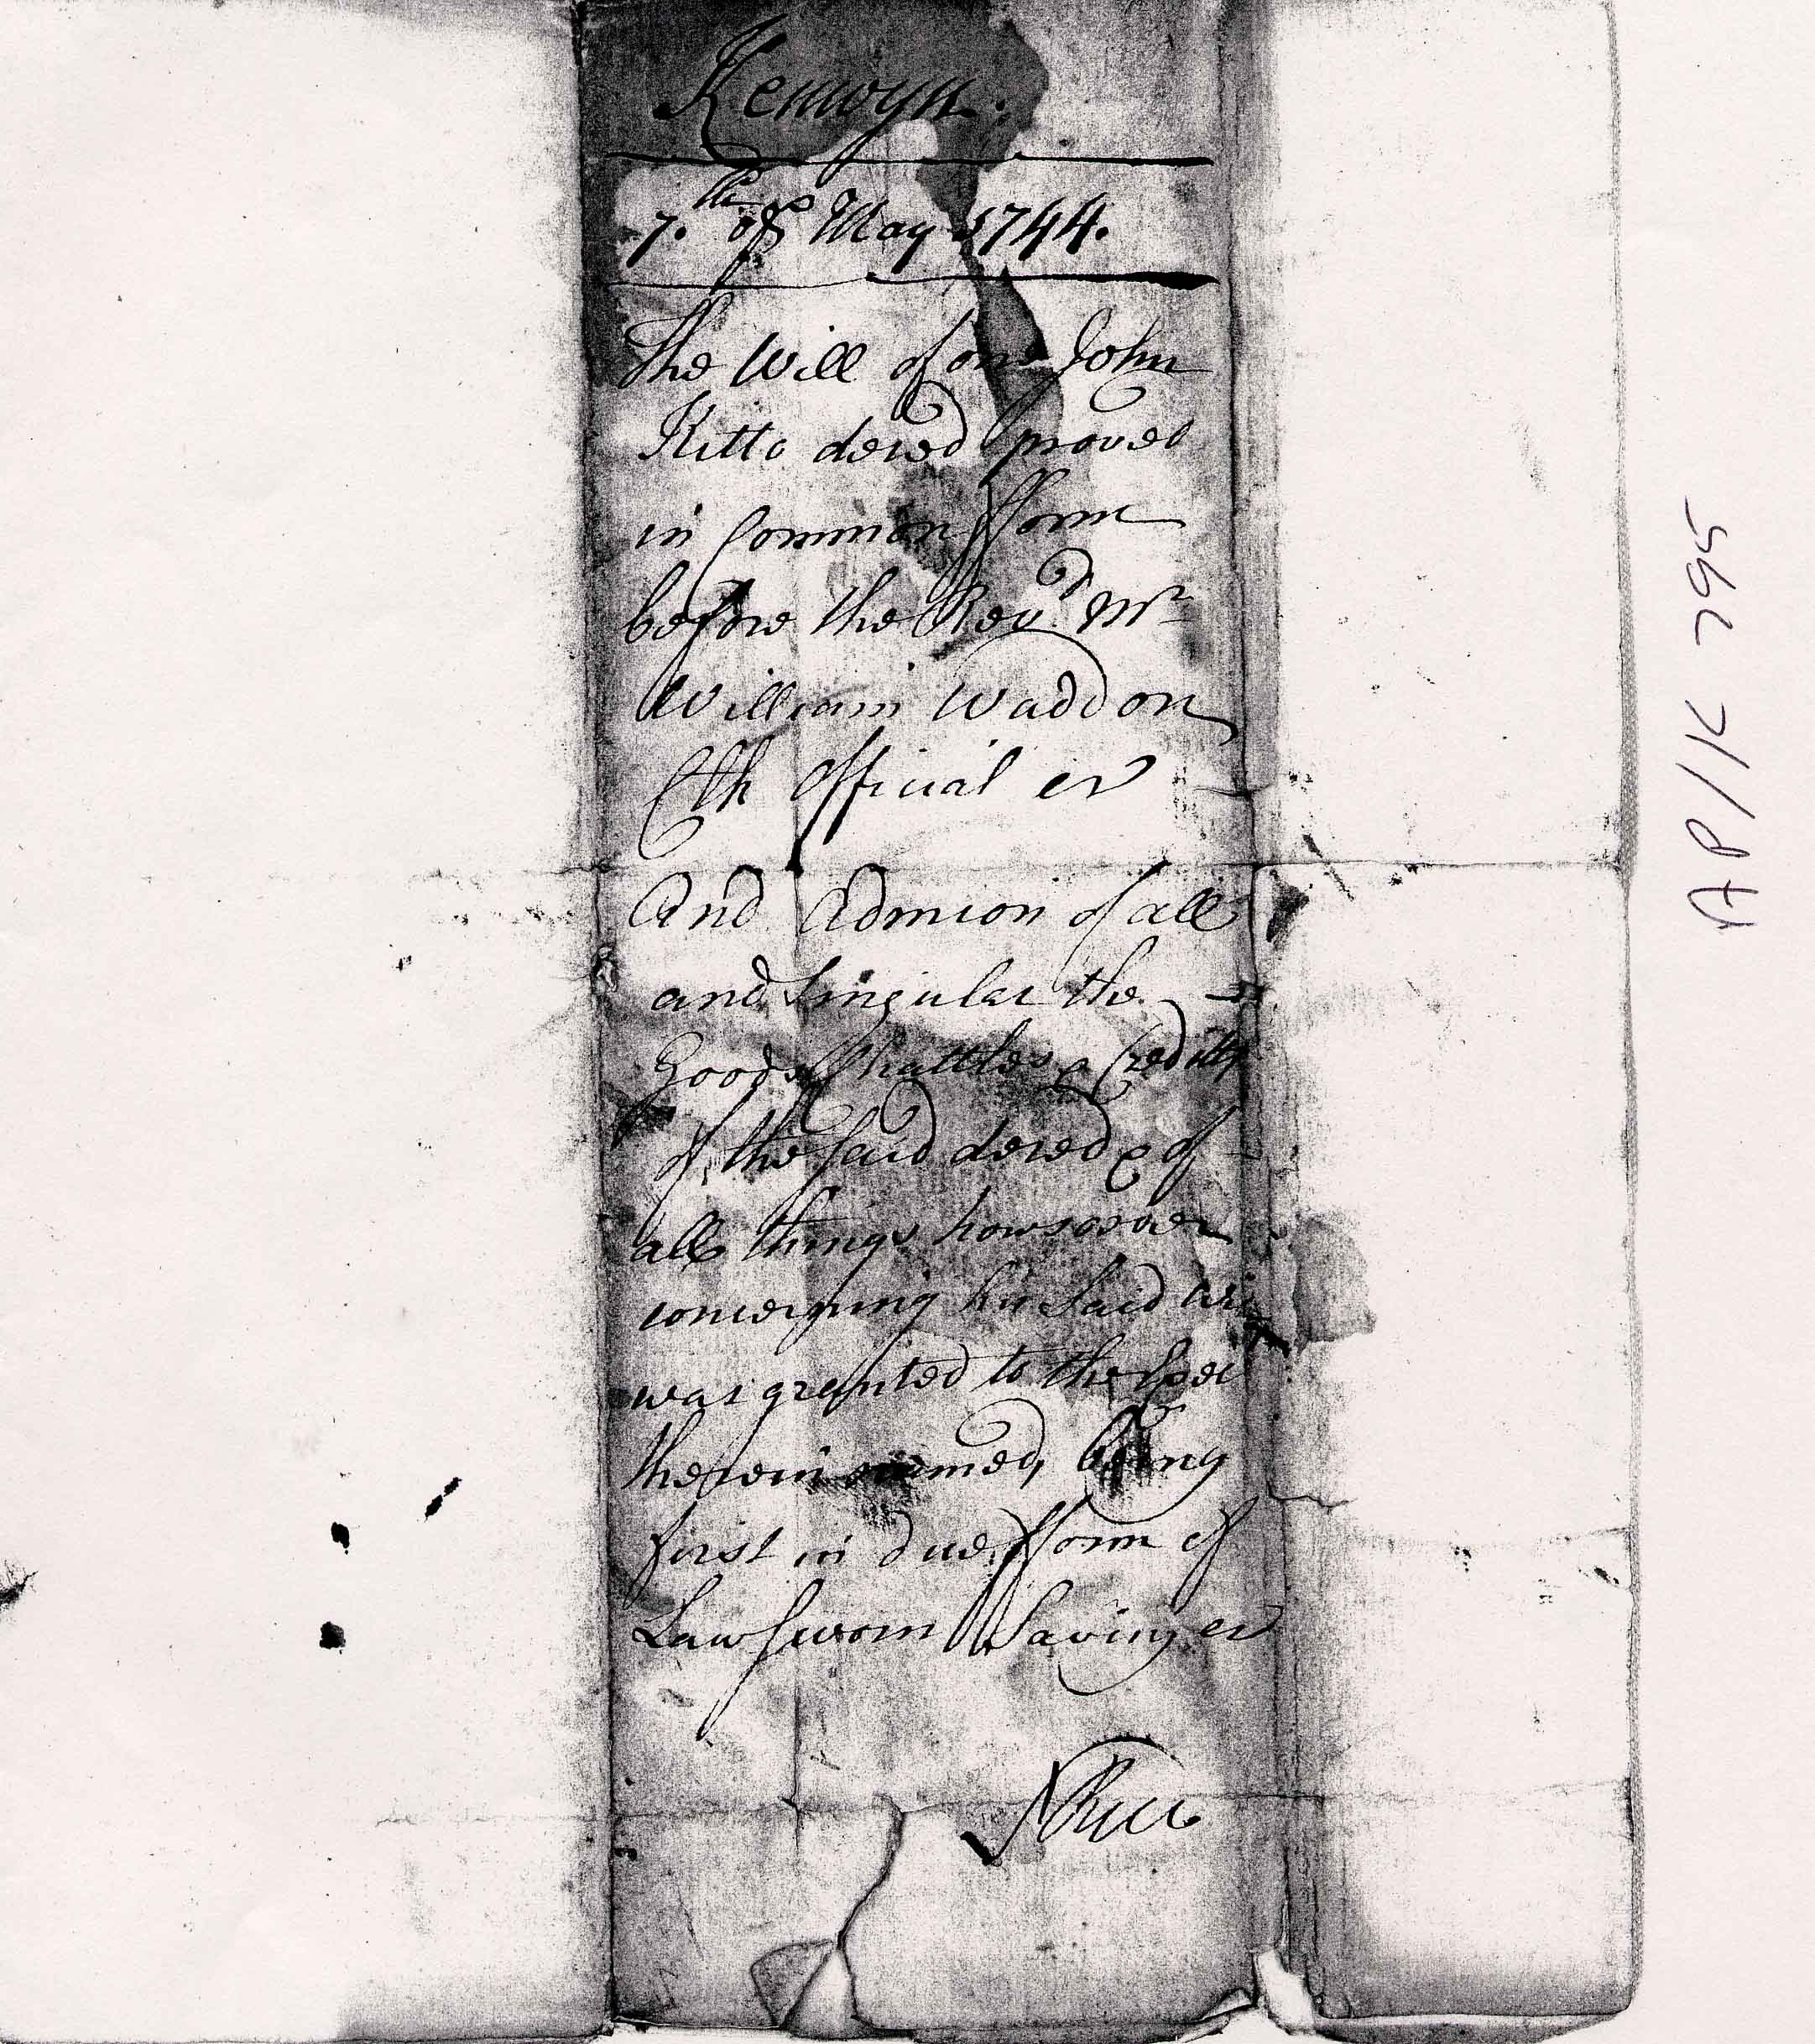 Kenwyn.
7.th of May 1744.
The Will of one John
Kitto deced proved
in Common fform
before the Revd. Mr
William Waddon
Clk Official etc
And Admion of all
and Singular the
Goods Chattles & Creditts
of the said deced & of
all things howsoever
concerning his said Will
was granted to the Exec
therein named, being
first in due fform of
Law sworn Saving etc
AP/K 795